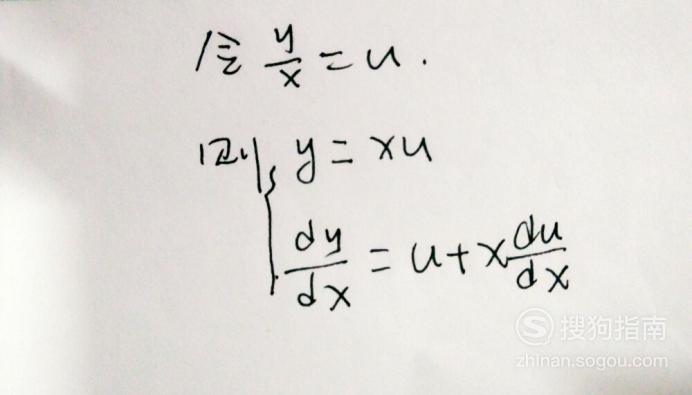 令 y/x = u.
则 { y = xu
dy/dx = u + x du/dx
搜狗指南
zhinan.sogou.com